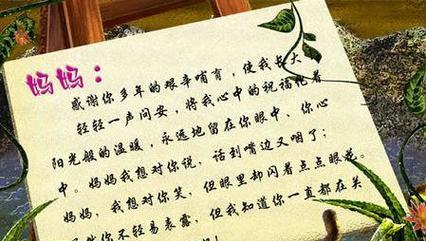 妈妈：
感谢你多年的艰辛哺育，使我长大
轻轻一声问安，将我心中的祝福托着
阳光般的温暖，永远地留在你眼中、你心
中。妈妈我想对你说，话到嘴边又咽了；
妈妈，我想对你笑，但眼里却闪着点点眼花。
你不轻易表露，但我知道你一直都在关